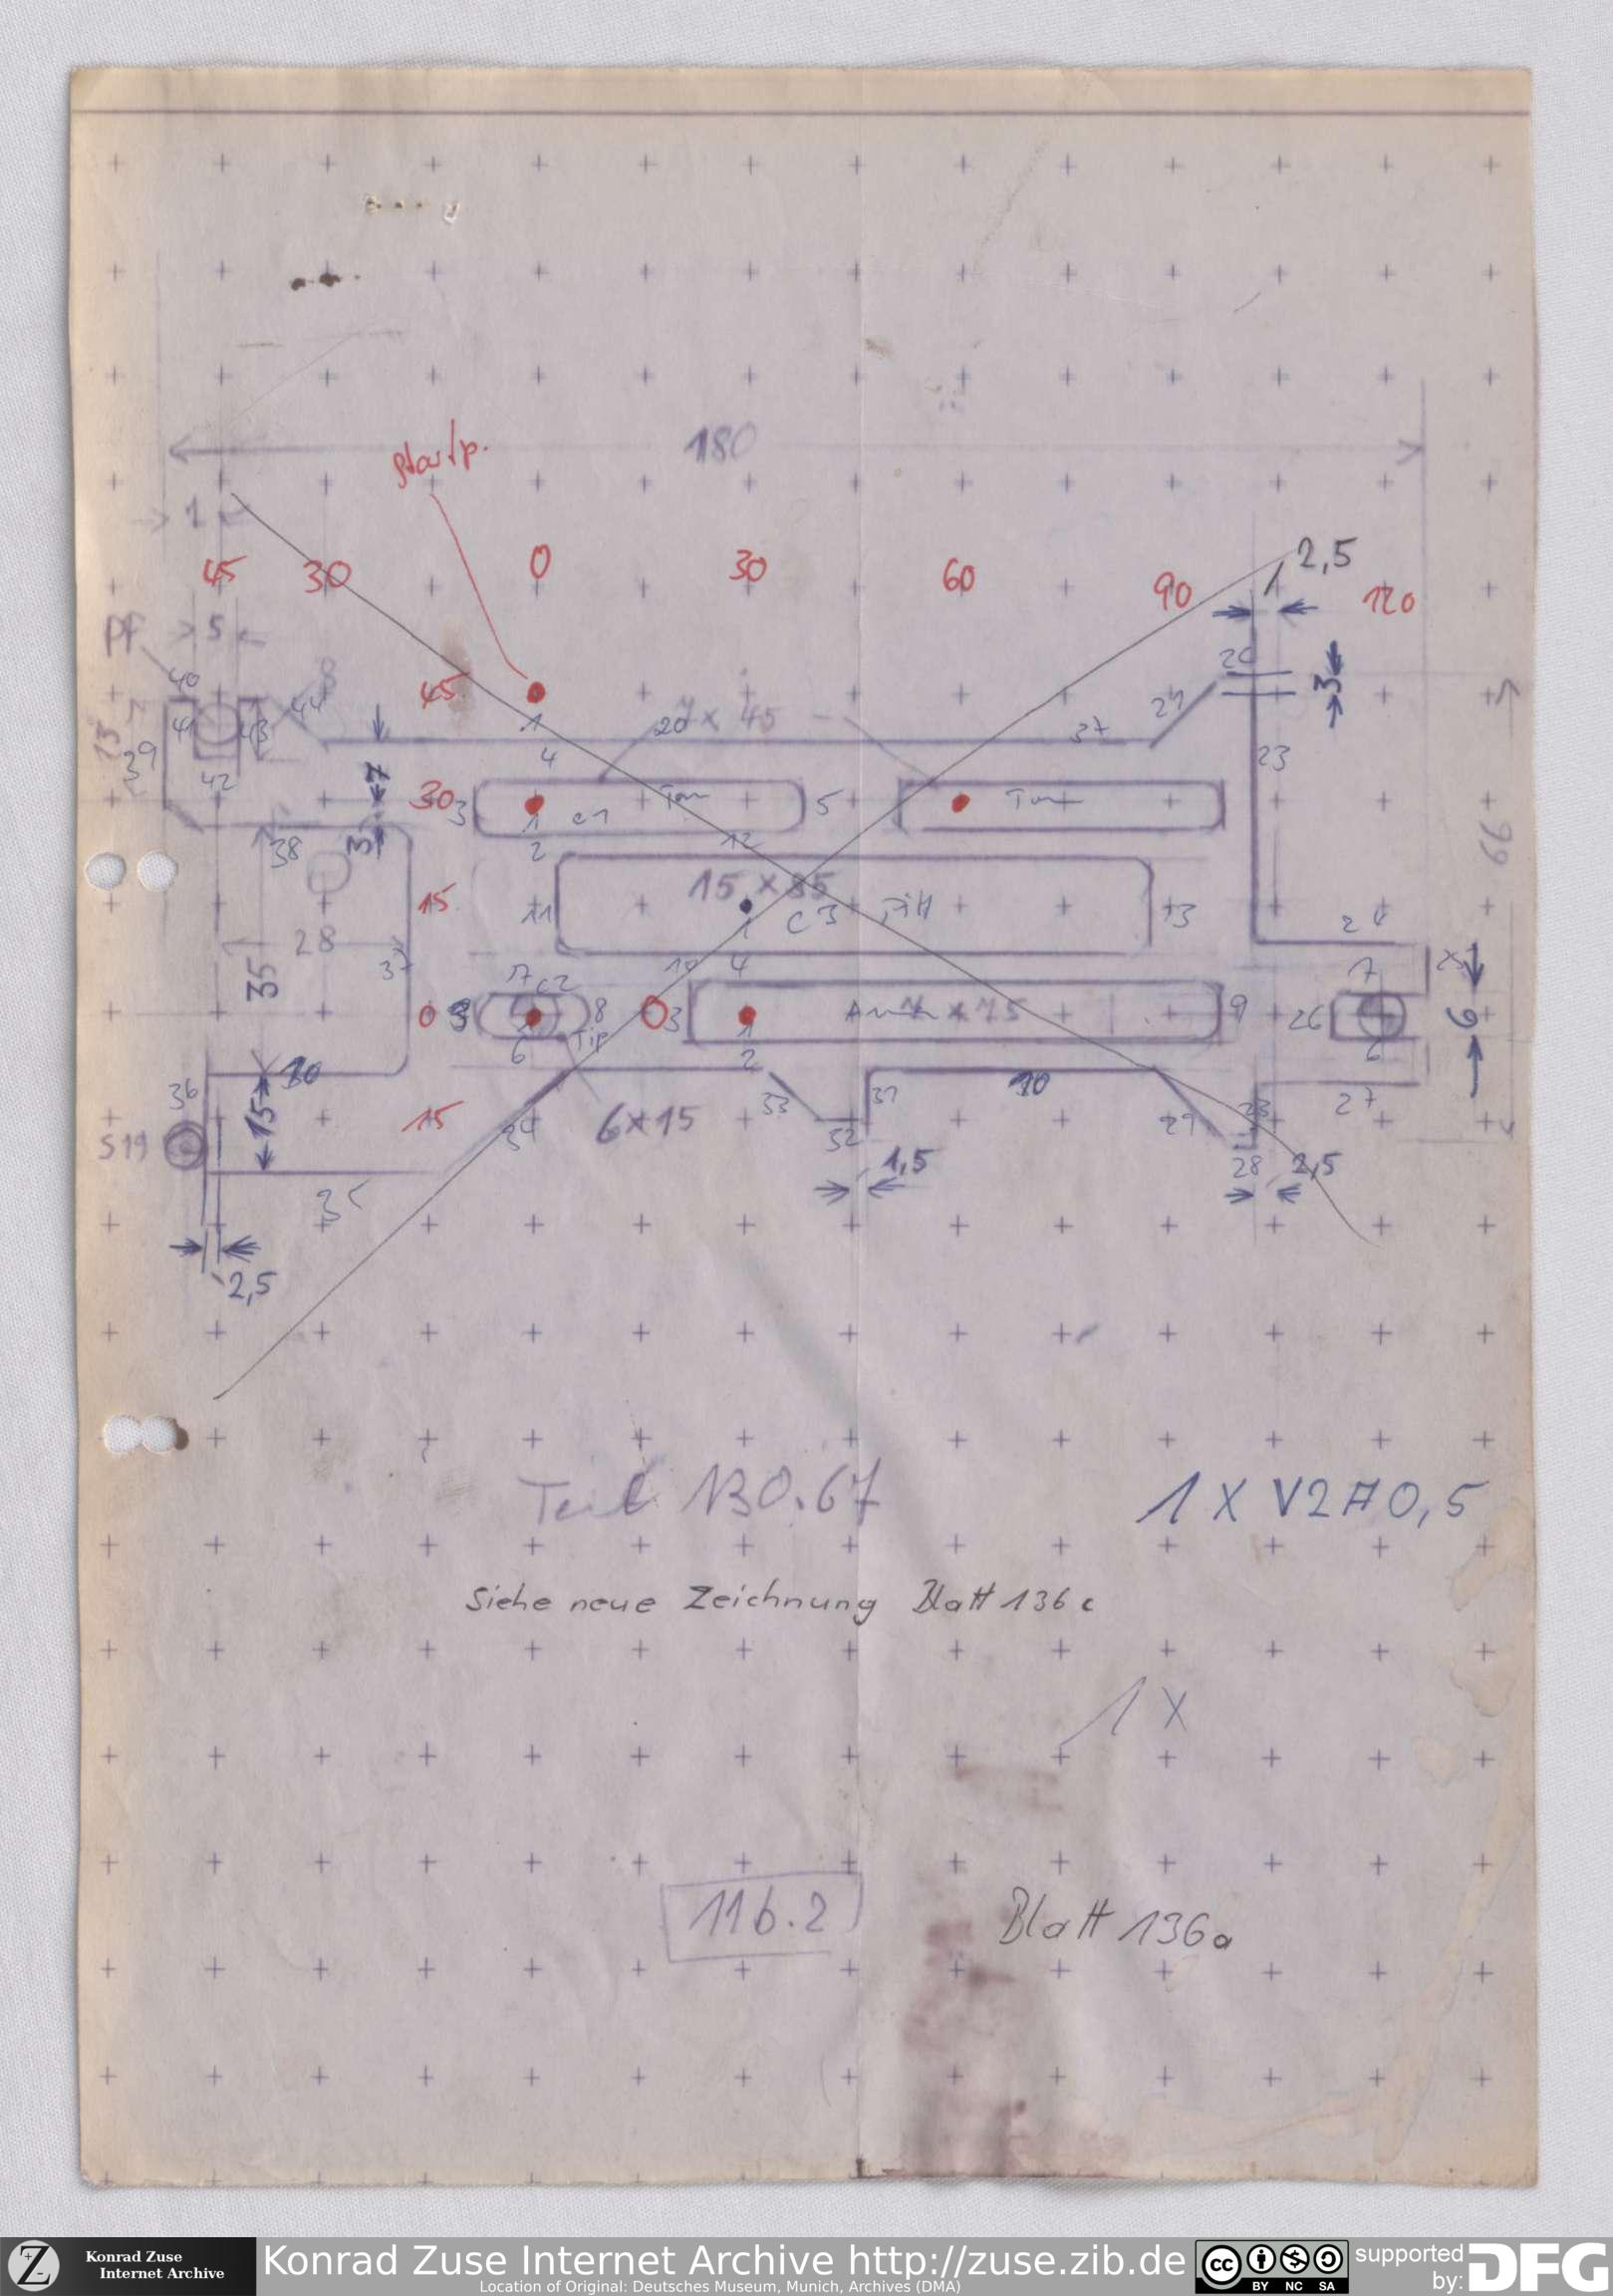 180
startp.
1
45 30 0 30 60 90 120
2,5
PF 5
40 8 44
45
1
20 7 x 45
37 29 20
3
13 39 41 43 42
4
23
7
30 3 1 c1 Ton 5
2 12
38 3
66
15 x 85
15 11 1 C3 13
28 37
35
10 4
24
25
17 c2
0 3 8 3 1 7 x 75 9 26 7
6 Tip 2 6
6
36 30 15
33 31 30 27
15 34 6x15 32 29
S19
28 2,5
1,5
35
2,5
Teil 130.67
1 X V2A 0,5
Siehe neue Zeichnung Blatt 136 c
1 X
116.2
Blatt 136a
Konrad Zuse
Internet Archive
Konrad Zuse Internet Archive http://zuse.zib.de
Location of Original: Deutsches Museum, Munich, Archives (DMA)
cc BY NC SA
supported by: DFG